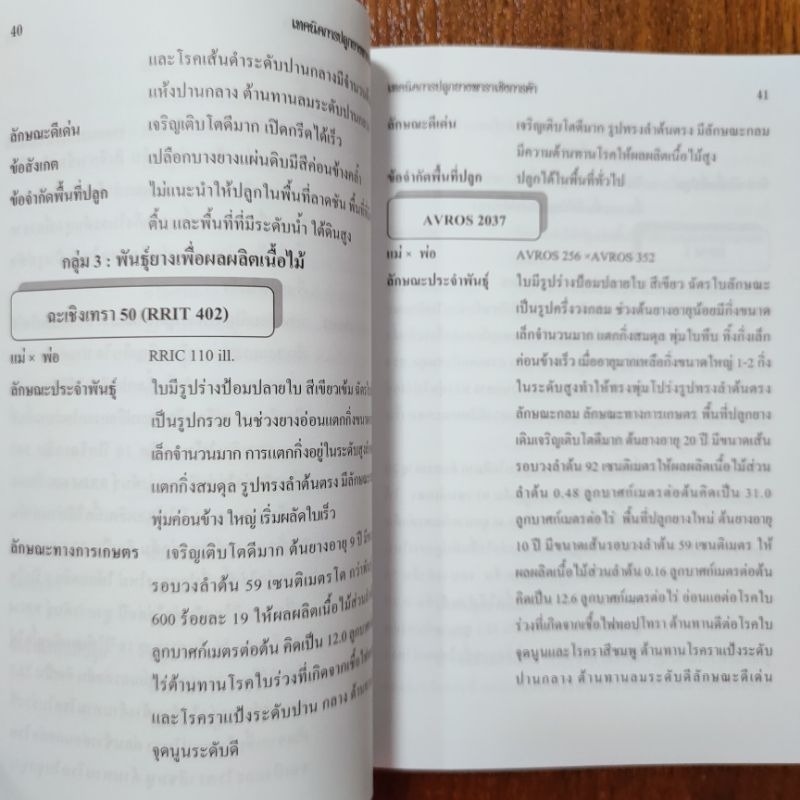 40
เทคนิคการปลูกยางพารา
และโรคเส้นดำระดับปานกลางมีจำนวน
แห้งปานกลาง ต้านทานลมระดับปานกลาง
ลักษณะดีเด่น เจริญเติบโตดีมาก เปิดกรีดได้เร็ว
ข้อสังเกต เปลือกบางยางแผ่นดิบมีสีค่อนข้างคล้ำ
ข้อจำกัดพื้นที่ปลูก ไม่แนะนำให้ปลูกในพื้นที่ลาดชัน พื้นที่
ตื้น และพื้นที่ที่มีระดับน้ำ ใต้ดินสูง
กลุ่ม 3 : พันธุ์ยางเพื่อผลผลิตเนื้อไม้
ฉะเชิงเทรา 50 (RRIT 402)
แม่ × พ่อ RRIC 110 ill.
ลักษณะประจำพันธุ์ ใบมีรูปร่างป้อมปลายใบ สีเขียวเข้ม
เป็นรูปกรวย ในช่วงยางอ่อนแตกกิ่งขนาด
เล็กจำนวนมาก การแตกกิ่งอยู่ในระดับสูง
แตกกิ่งสมดุล รูปทรงลำต้นตรง มีลักษณะ
พุ่มค่อนข้าง ใหญ่ เริ่มผลัดใบเร็ว
ลักษณะทางการเกษตร เจริญเติบโตดีมาก ต้นยางอายุ 9 ปี
รอบวงลำต้น 59 เซนติเมตรโต กว่า
600 ร้อยละ 19 ให้ผลผลิตเนื้อไม้ส่วน
ลูกบาศก์เมตรต่อต้น คิดเป็น 12.0
ไร่ต้านทานโรคใบร่วงที่เกิดจากเชื้อ
และโรคราแป้งระดับปาน กลาง
จุดนูนระดับดี
เทคนิคการปลูกยางพาราเชิงการค้า 41
ลักษณะดีเด่น เจริญเติบโตดีมาก รูปทรงลำต้นตรง มีลักษณะกลม
มีความต้านทานโรคให้ผลผลิตเนื้อไม้สูง
ข้อจำกัดพื้นที่ปลูก ปลูกได้ในพื้นที่ทั่วไป
AVROS 2037
แม่ × พ่อ AVROS 256 ×AVROS 352
ลักษณะประจำพันธุ์ ใบมีรูปร่างป้อมปลายใบ สีเขียว ฉัตรใบลักษณะ
เป็นรูปครึ่งวงกลม ช่วงต้นยางอายุน้อยมีกิ่งขนาด
เล็กจำนวนมาก แตกกิ่งสมดุล พุ่มใบทึบ ทิ้งกิ่งเล็ก
ค่อนข้างเร็ว เมื่ออายุมากเหลือกิ่งขนาดใหญ่ 1-2 กิ่ง
ในระดับสูงทำให้ทรงพุ่มโปร่งรูปทรงลำต้นตรง
ลักษณะกลม ลักษณะทางการเกษตร พื้นที่ปลูกยาง
เดิมเจริญเติบโตดีมาก ต้นยางอายุ 20 ปี มีขนาดเส้น
รอบวงลำต้น 92 เซนติเมตรให้ผลผลิตเนื้อไม้ส่วน
ลำต้น 0.48 ลูกบาศก์เมตรต่อต้นคิดเป็น 31.0
ลูกบาศก์เมตรต่อไร่ พื้นที่ปลูกยางใหม่ ต้นยางอายุ
10 ปี มีขนาดเส้นรอบวงลำต้น 59 เซนติเมตร ให้
ผลผลิตเนื้อไม้ส่วนลำต้น 0.16 ลูกบาศก์เมตรต่อต้น
คิดเป็น 12.6 ลูกบาศก์เมตรต่อไร่ อ่อนแอต่อโรคใบ
ร่วงที่เกิดจากเชื้อไฟทอปโทรา ต้านทานดีต่อโรคใบ
จุดนูนและโรคราสีชมพู ต้านทานโรคราแป้งระดับ
ปานกลาง ต้านทานลมระดับดีลักษณะดีเด่น